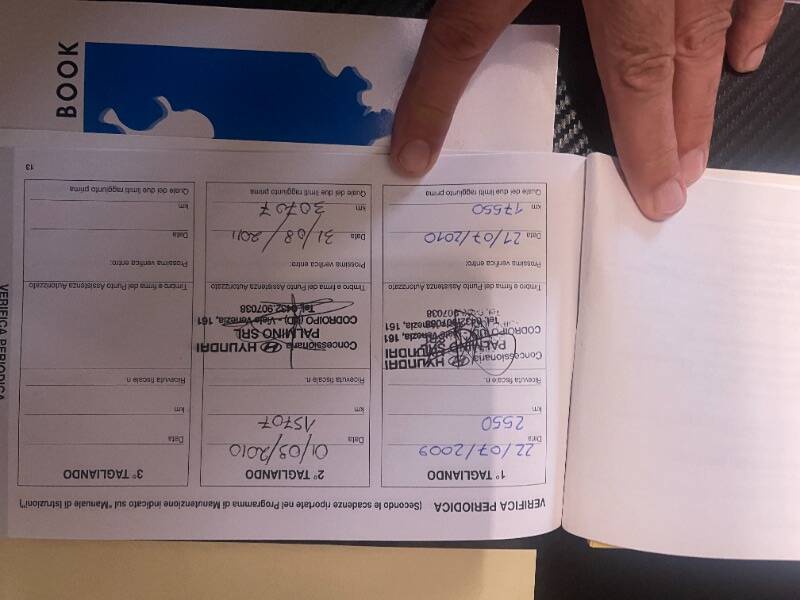 BOOK
VERIFICA PERIODICA (Secondo le scadenze riportate nel Programma di Manutenzione indicato sul "Manuale di Istruzioni")
1° TAGLIANDO
Data 22/07/2009
km 2550
Ricevuta fiscale n.
Concessionaria HYUNDAI
PALMINO SRL
CODROIPO (UD) - Viale Venezia, 161
Tel. 0432.907038
Timbro e firma del Punto Assistenza Autorizzato
Prossima verifica entro:
Data 21/07/2010
km 17550
Quale dei due limiti raggiunto prima
2° TAGLIANDO
Data 01/09/2010
km 15707
Ricevuta fiscale n.
Concessionaria HYUNDAI
PALMINO SRL
CODROIPO (UD) - Viale Venezia, 161
Tel. 0432.907038
Timbro e firma del Punto Assistenza Autorizzato
Prossima verifica entro:
Data 31/08/2011
km 30707
Quale dei due limiti raggiunto prima
3° TAGLIANDO
Data
km
Ricevuta fiscale n.
Timbro e firma del Punto Assistenza Autorizzato
Prossima verifica entro:
Data
km
Quale dei due limiti raggiunto prima
13
VERIFICA PERIODICA